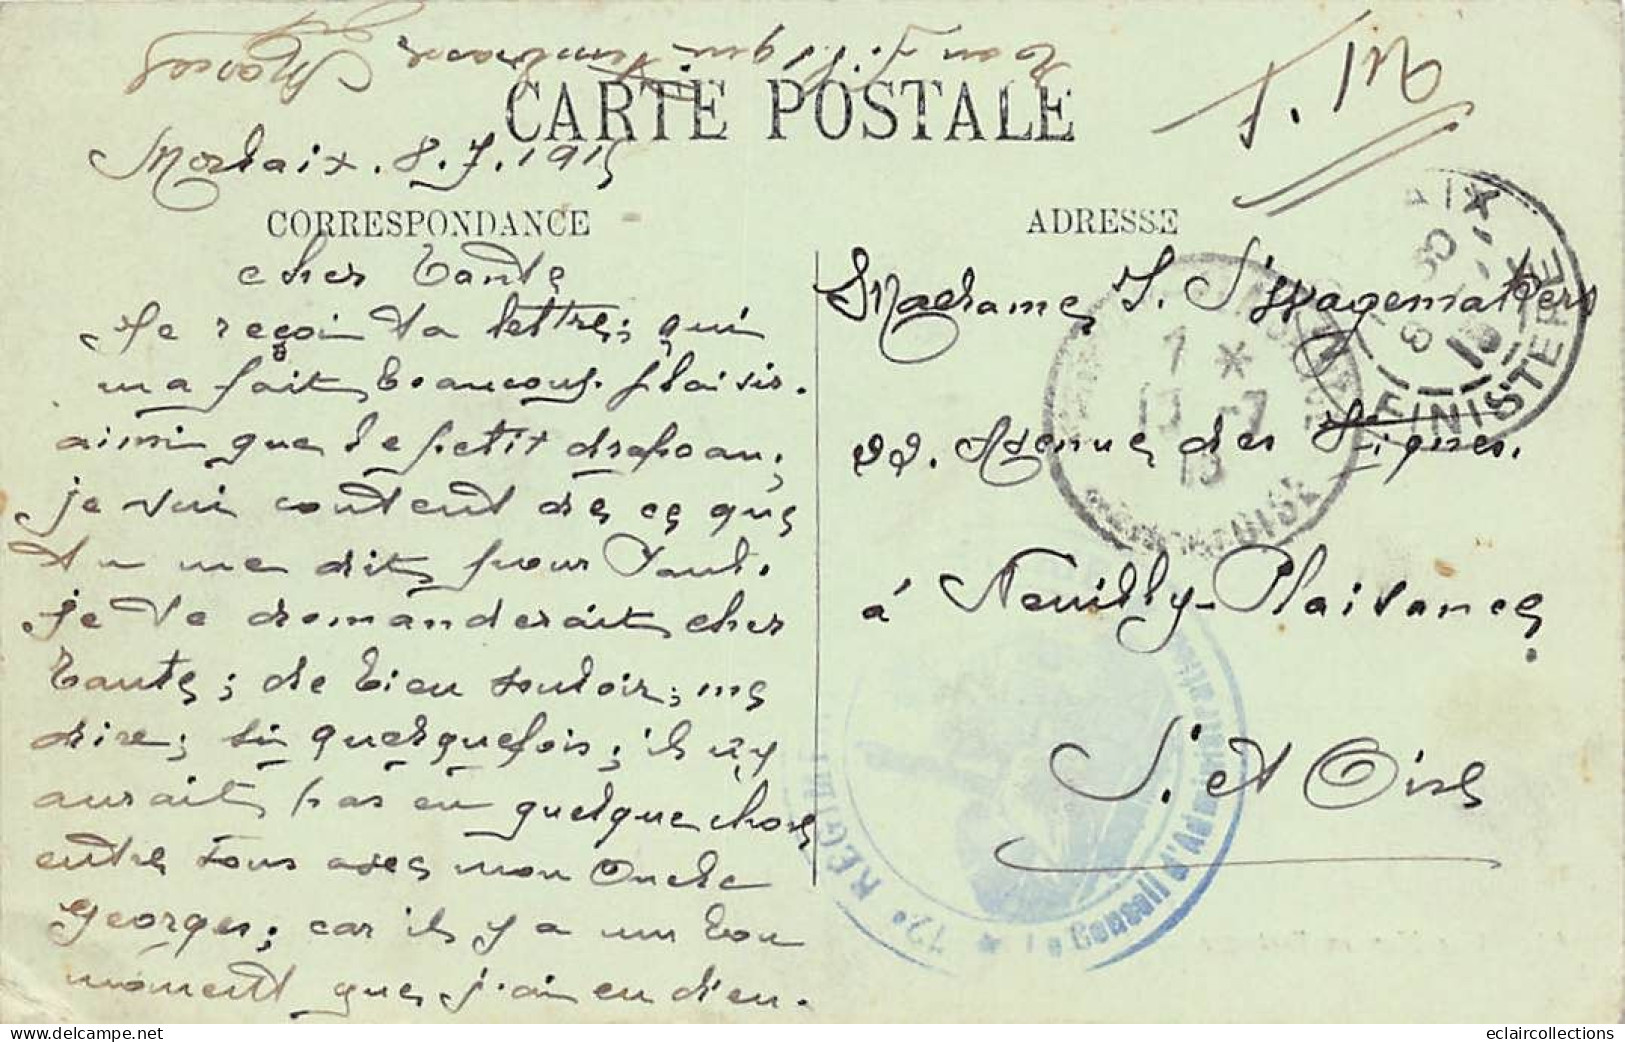 Ton F... qui t'embrasse Marcel
F. M.
CARTE POSTALE
Morlaix. 8. 7. 1915
CORRESPONDANCE
ADRESSE
cher Tante
Je reçoi ta lettre; qui
ma fait beaucoup plaisir.
ainsi que le petit drapeau;
je sui content de ce que
tu me dit pour Paul.
je te demanderait cher
Tante; de bien vouloir; me
dire; si quelquefois; il n'y
aurait pas eu quelque chose
entre vous avec mon Oncle
Georges; car il y a un bon
moment que j'ai eu d'eu.
Madame J. Swagemakers
22. Avenue des Vignes.
à Neuilly-Plaisance
S. et Oise
AIX
8
15
FINISTERE
7 *
13 -7
15
SEINE-ET-OISE
72e REGIME
* Le Conseil d'Administrati
eclaircollections